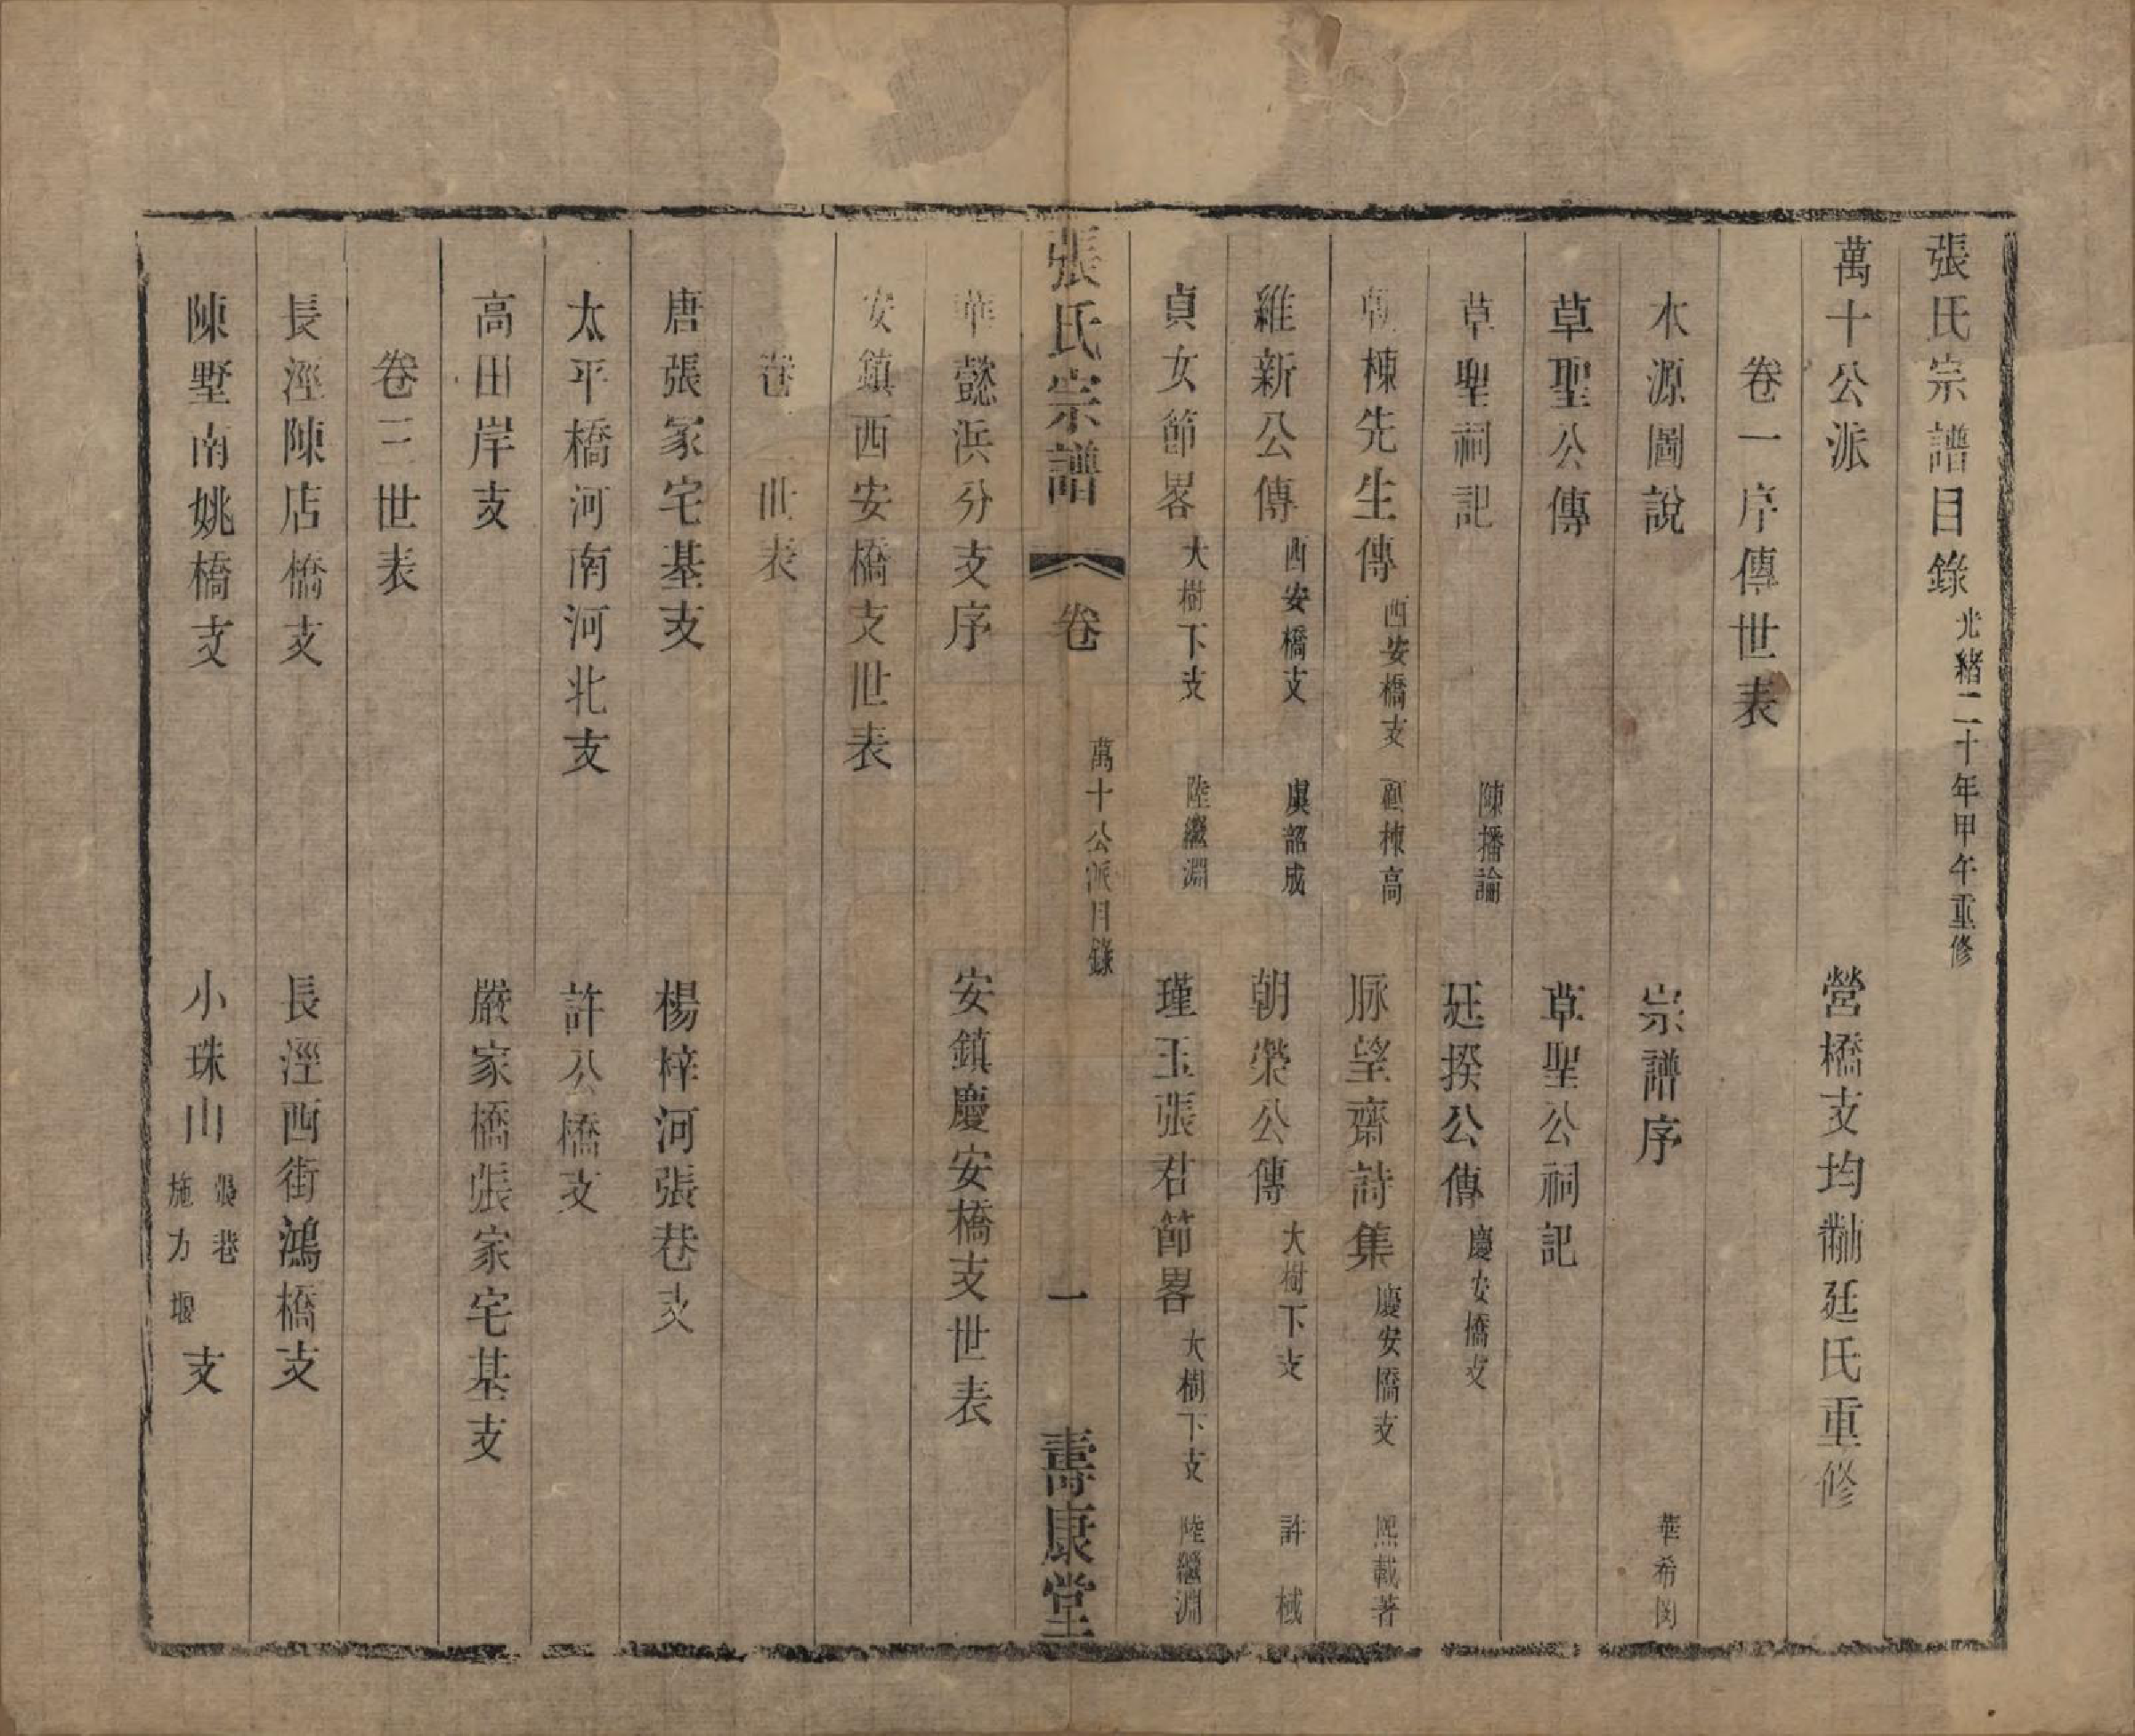 張氏宗譜目錄 光緒二十年甲午重修
萬十公派 營橋支均黼廷氏重修
卷一序傳世表
水源圖說 宗譜序 華希閔
草聖公傳 草聖公祠記
草聖祠記 陳播論 廷揆公傳 慶安橋支
朝棟先生傳 西安橋支 顧棟高 脉望齋詩集 慶安橋支 熙載著
維新公傳 西安橋支 虞韶成 朝榮公傳 大樹下支 許棫
貞女節畧 大樹下支 陸繼淵 瑾玉張君節畧 大樹下支 陸繼淵
張氏宗譜 卷 萬十公派目錄 一 壽康堂
華懿浜分支序 安鎮慶安橋支世表
安鎮西安橋支世表
卷二世表
唐張冢宅基支 楊梓河張巷支
太平橋河南河北支 許公橋支
高田岸支 嚴家橋張家宅基支
卷三世表
長涇陳店橋支 長涇西街鴻橋支
陳墅南姚橋支 小珠山 張巷 施力堰 支